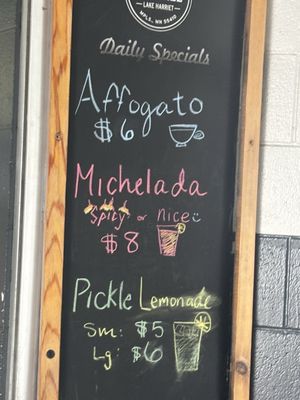 LAKE HARRIET
MPLS, MN 55410
Daily Specials
Affogato
$6
Michelada
Spicy or nice
$8
Pickle Lemonade
Sm: $5
Lg: $6